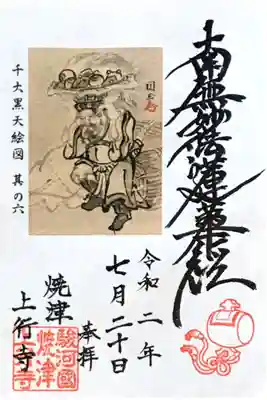 南無妙法蓮華経
令和二年
七月二十日
奉拝
焼津
上行寺
千大黒天絵図 其の六
駿河國
焼津
上行寺